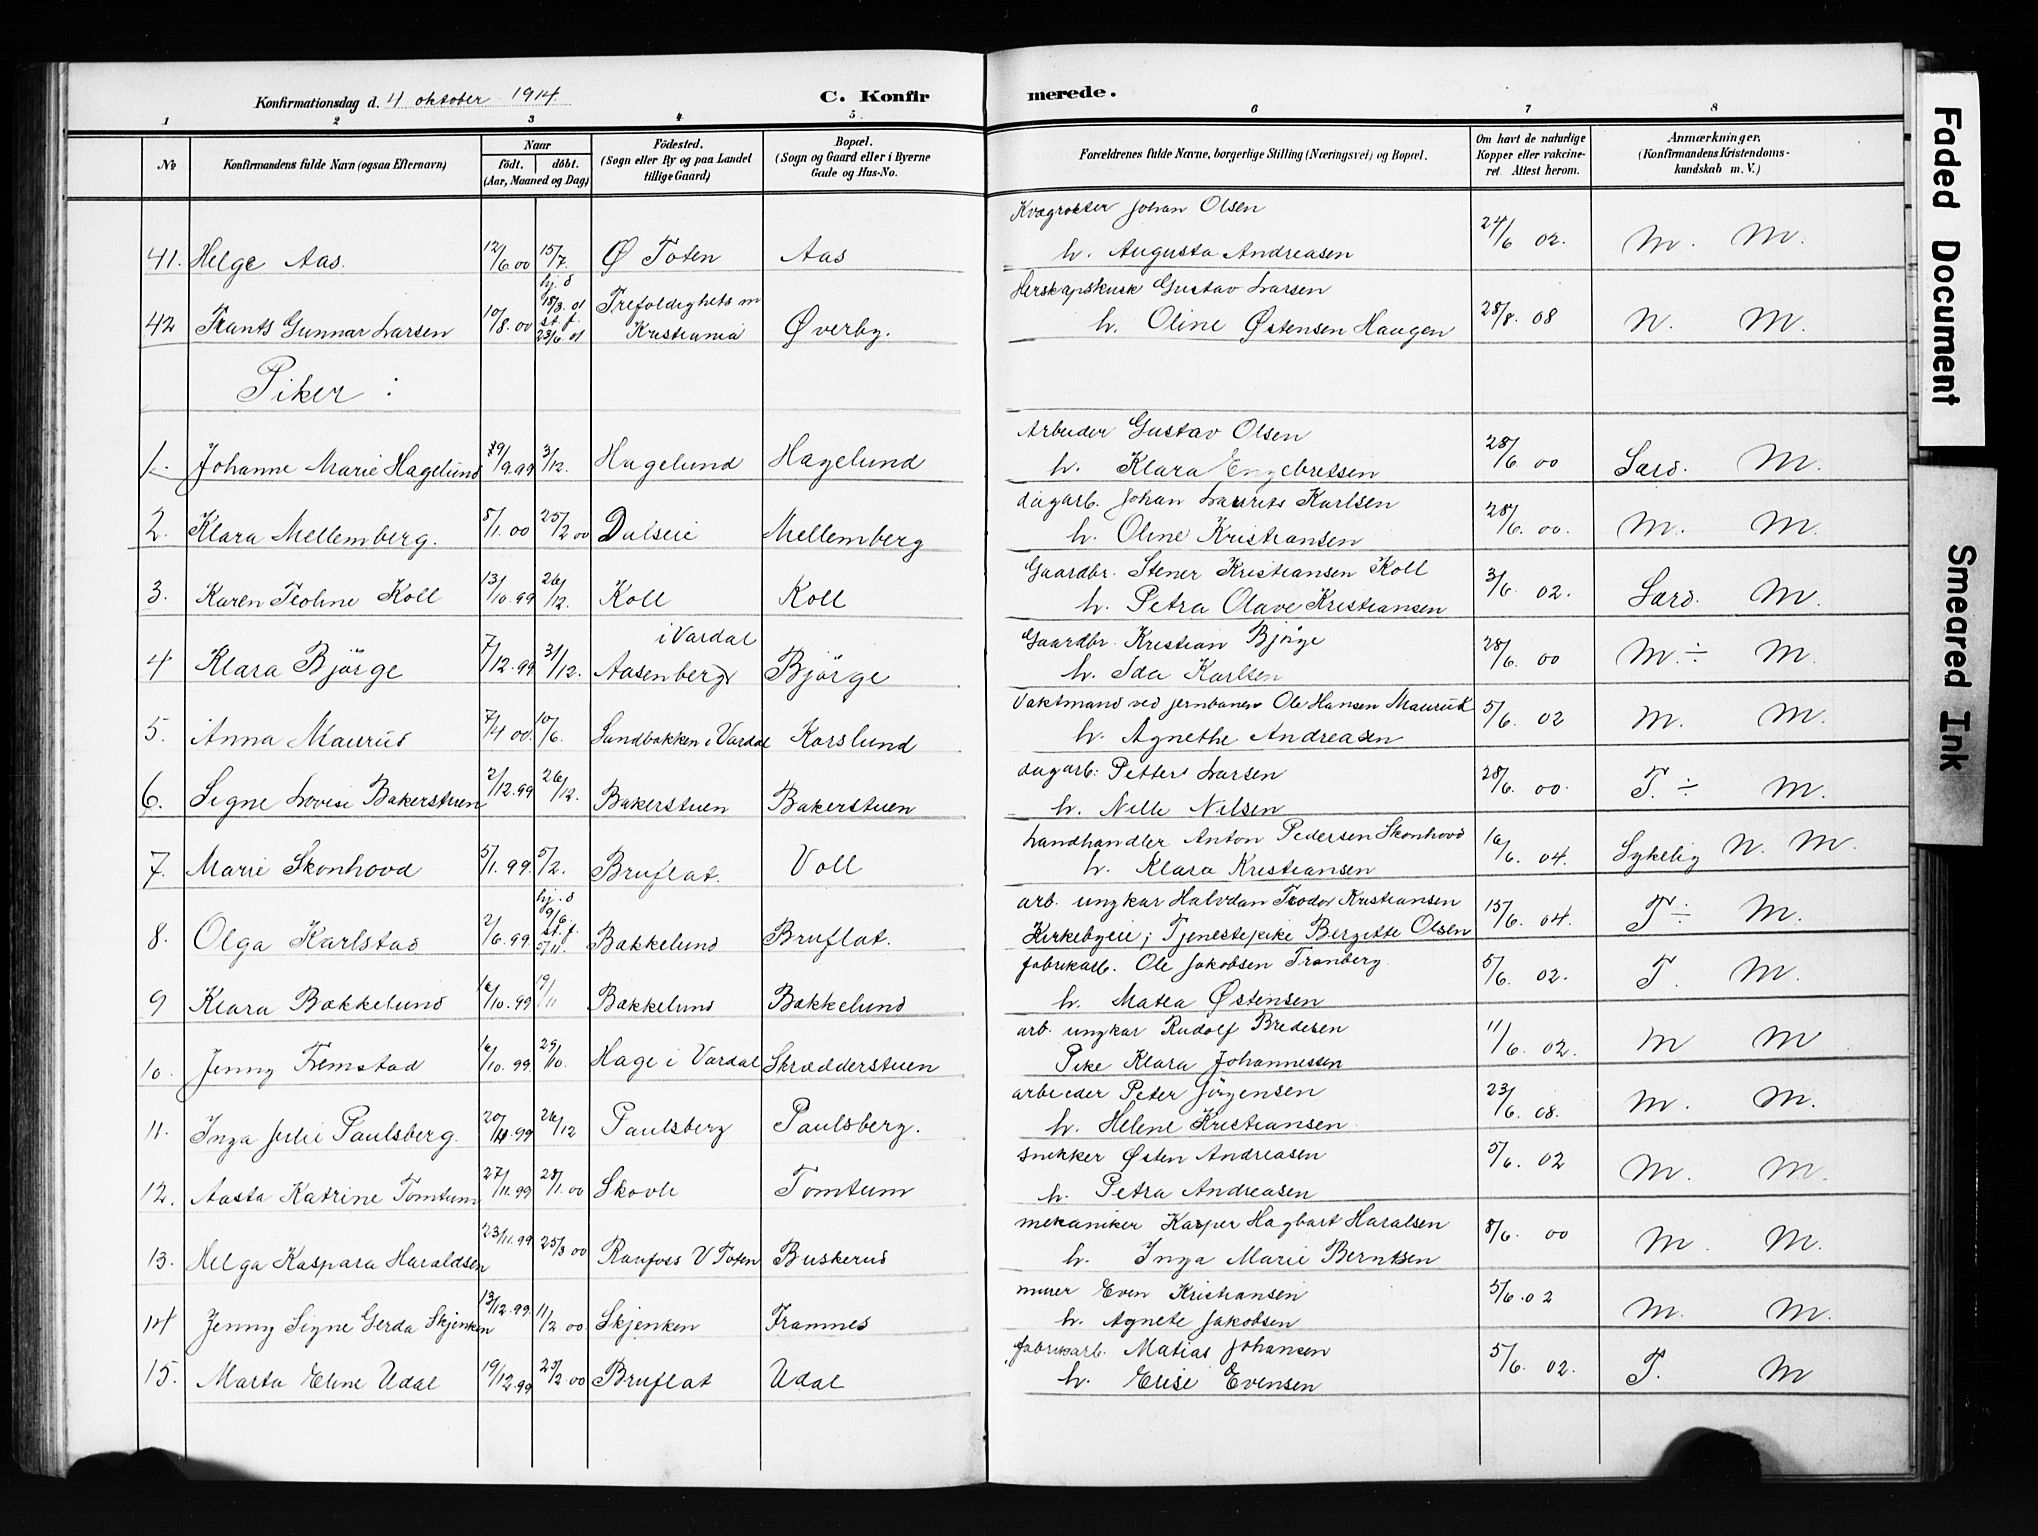 Konfirmationsdag d. 4 oktober 1914 C. Konfir merede.
1 2 3 4 5 6 7 8
No Konfirmandens fulde Navn (ogsaa Efternavn) Naar født. døbt. (Aar, Maaned og Dag) Födested. (Sogn eller By og paa Landet tillige Gaard) Bopæl. (Sogn og Gaard eller i Byerne Gade og Hus-No. Forældrenes fulde Navne, borgerlige Stilling (Næringsvei) og Bopæl. Om havt de naturlige Kopper eller vakcineret. Attest herom. Anmærkninger. (Konfirmandens Kristendomskundskab m. V.)
Kvægrøkter Johan Olsen
41. Helge Aas. 12/6.00 15/7. Ø Toten Aas h. Augusta Andreasen 24/6 02. M. M.
Herskapskusk Gustav Larsen
42 Frants Gunnar Larsen 10/8.00 hj. d 18/3.01 st. f. 23/6 01 Trefoldighets m Kristiania Øverby. h. Oline Østensen Haugen 28/8. 08 N. M.
Piker :
Arbeider Gustav Olsen
1. Johanne Marie Hagelund 29/9.99 3/12. Hagelund Hagelund h. Klara Engebretsen 28/6 00 Særd. M.
dagarb. Johan Laurits Karlsen
2. Klara Mellemberg. 8/1.00 25/2 00 Dalseie Mellemberg h. Oline Kristiansen 28/6. 00. M. M.
Gaardbr. Stener Kristiansen Koll
3. Karen Teoline Koll 13/10.99 26/12. Koll Koll h. Petra Olave Kristiansen 3/6. 02. Særd. M.
Gaardbr. Kristian Bjørge
4 Klara Bjørge 7/12.99 31/12. i Vardal Aasenberg Bjørge h. Ida Karlsen 28/6. 00 M. ÷ M.
Vaktmand ved jernbanen Ole Hansen Maurud
5. Anna Maurud 7/4 00. 10/6. Sandbakken i Vardal Karslund h. Agnethe Andreasen 5/6. 02 M. M.
dagarb. Petter Larsen
6. Signe Lovise Bakerstuen 2/12.99 26/12. Bakerstuen Bakerstuen h. Nille Nilsen 28/6. 00. T. ÷ M.
Landhandler Anton Pedersen Skonhovd
7. Marie Skonhovd 5/1.99. 5/2. Bruflat. Voll h. Klara Kristiansen 16/6. 04. Sykelig N. M.
arb. ungkar Halvdan Teodor Kristiansen
8. Olga Karlstad 2/6.99 hj. d 9/6. st. f. 5/11. Bakkelund Bruflat. Kirkebyeie; Tjenestepike Bergitte Olsen 15/6. 04. T ÷ M.
fabrikarb. Ole Jakobsen Tranberg.
9 Klara Bakkelund 16/10.99 19/11 Bakkelund Bakkelund h. Matea Østensen 5/6. 02. T. M.
arb. ungkar Rudolf Bredesen
10. Jenny Fremstad 16/10.99. 29/10. Hage i Vardal Skrædderstuen Pike Klara Johannessen 11/6. 02. M M
arbeider Peter Jörgensen
11. Inga Julie Paulsberg. 20/11.99 26/12 Paulsberg Paulsberg. h. Helene Kristiansen. 23/6. 08. M. M.
snekker Østen Andreasen
12. Aasta Katrine Tomtum 27/11.99 28/1.00 Skovle Tomtum h. Petra Andreasen 5/6. 02 M. M.
mekaniker Kasper Hagbart Haralsen
13. Helga Kaspara Haraldsen 23/11.99 25/3 00 Raufoss V Toten Buskerud h. Inga Marie Berntsen 8/6. 00 M. M.
murer Even Kristiansen
14 Jenny Signe Gerda Skjenken 13/12.99. 11/2 00. Skjenken Framnes h. Agnete Jakobsen 5/6.02 M. M.
fabrikarb. Matias Johansen
15. Marta Eline Udal 19/12.99 25/2.00 Bruflat Udal h. Elise Evensen 5/6. 02. T. M
Faded Document
Smeared Ink